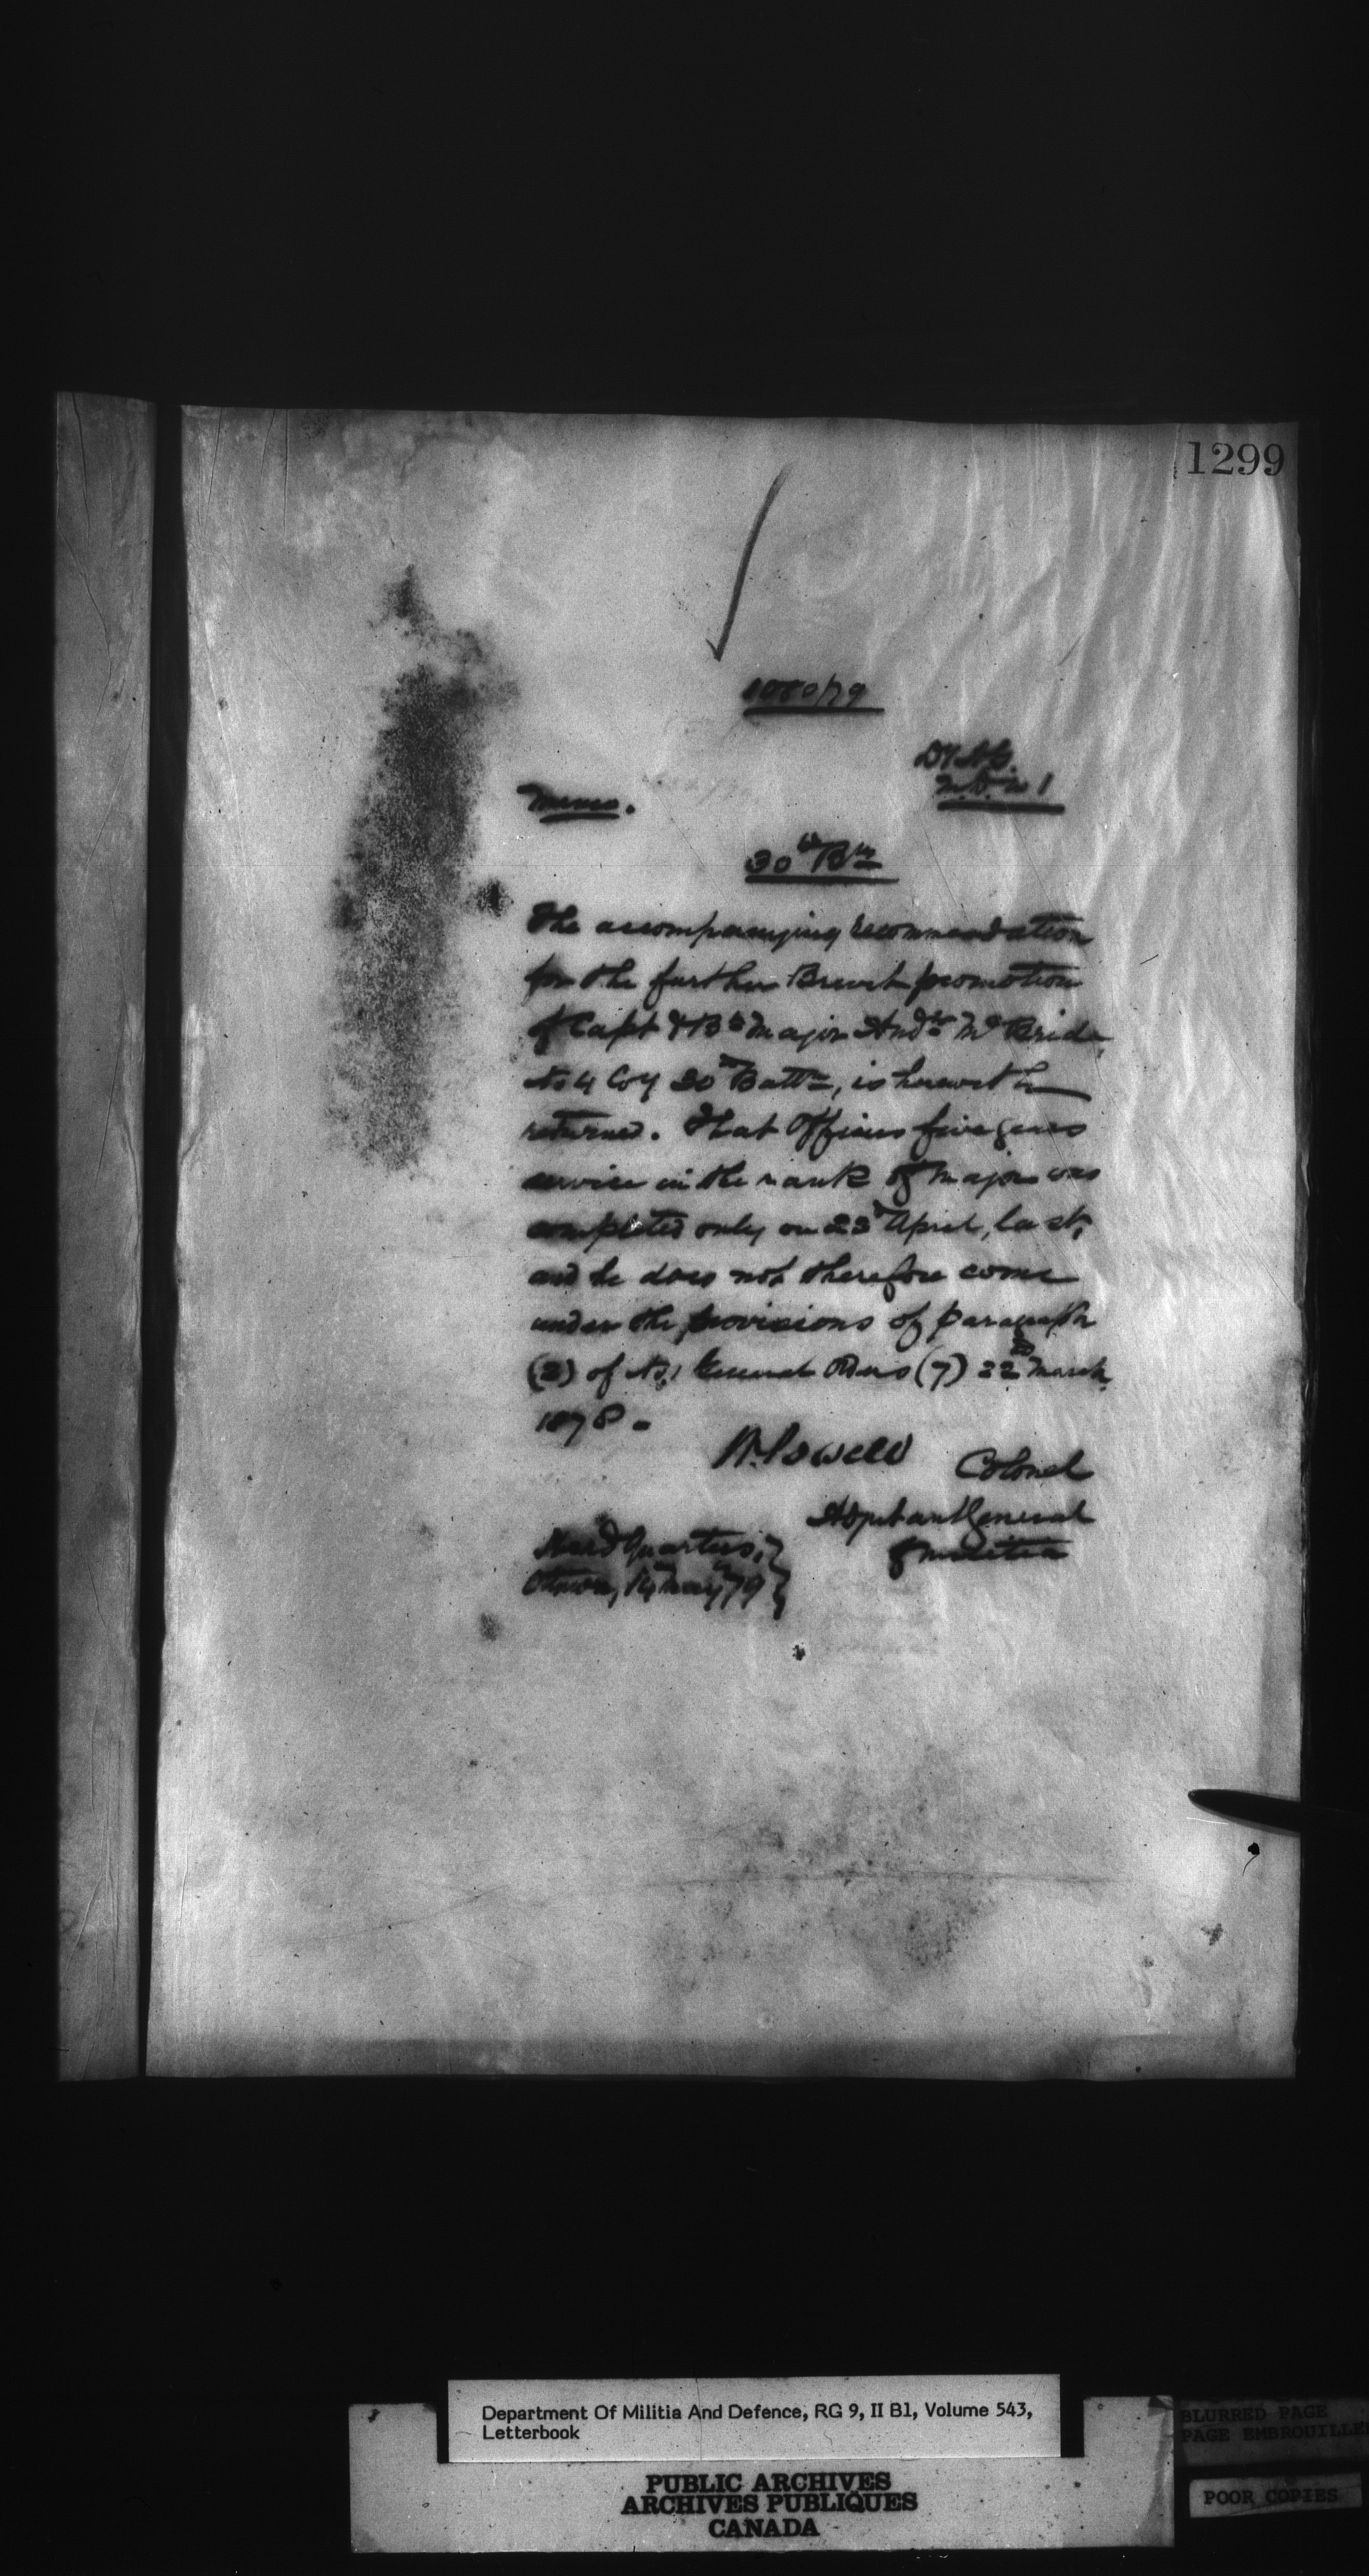 1299
1080/79
DyAG.
M.D. No 1
Memo.
30th Bn
The accompanying recommendation
for the further Brevet promotion
of Capt & Bt Major Andw McBride,
No 4 Coy 30th Battn, is herewith
returned. That Officers five years
service in the rank of Major was
completed only on 23d April, last,
and he does not therefore come
under the provisions of paragraph
(2) of No. 1 General Orders (7) 22nd March
1878.
W. Powell Colonel
Adjutant General
of Militia
Head Quarters,
Ottawa, 14th May 79
Department Of Militia And Defence, RG 9, II B1, Volume 543,
Letterbook
PUBLIC ARCHIVES
ARCHIVES PUBLIQUES
CANADA
BLURRED PAGE
PAGE EMBROUILLE
POOR COPIES